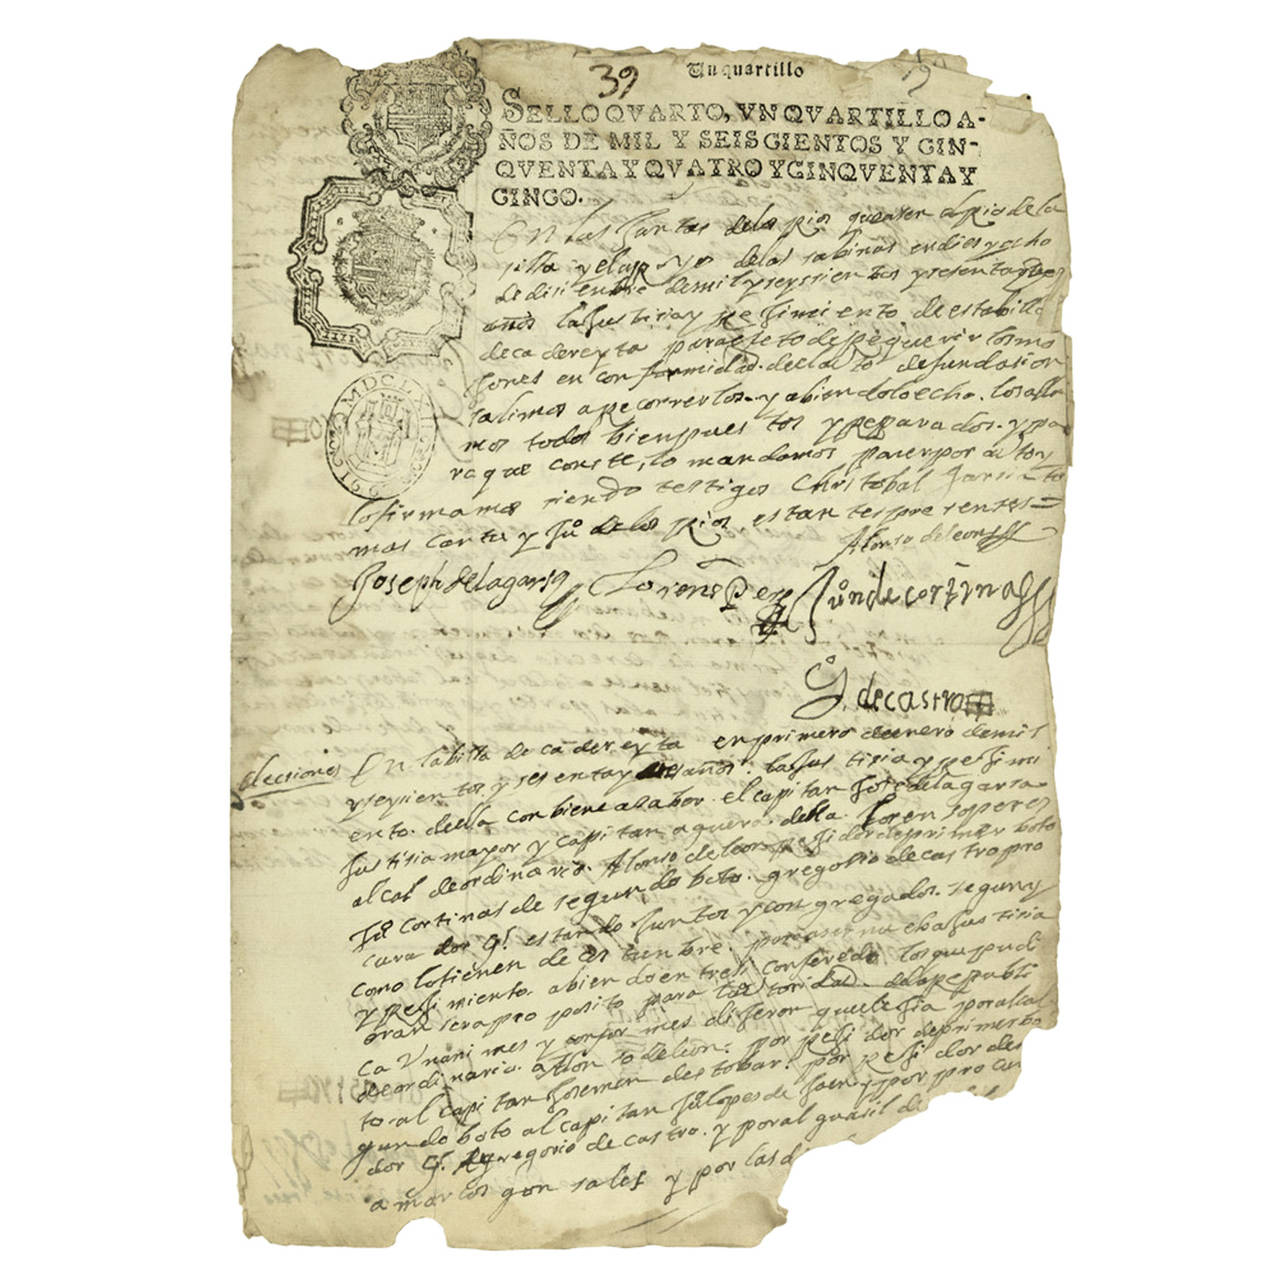 39
Un quartillo
19
SELLO QVARTO, VN QVARTILLO A-
ÑOS DE MIL Y SEISCIENTOS Y CIN-
QVENTA Y QVATRO Y CINQVENTA Y
CINCO.
En las Juntas delos rios que asen al pie de la
silla y el des de las sabinas en dies y ocho
de disienbre de mil y seyssientos y sesenta y
años la Justisia y rejimiento de esta billa
de cadereyta para efeto de requerir los mo
jones en conformidad del auto de fundasion
salimos a recorrerlos y abiendolo echo los alla
mos todos bien puestos y reparados y pa
ra que conste, lo mandamos poner por auto y
lo firmamos siendo testigos Christobal
mas Cortes y Juº de los rios estantes presentes =
Alonso de leon
Joseph de la garsa Lorenso Perez Juºn de cortinas
Gº. de castro
elecsiones En la billa de cadereyta en primero de enero de mil
y seysientos y sesenta y tres años la justisia y rejimi
ento della conbiene a sabor el capitan Jose de la garsa
Justisia mayor y capitan a guerra della Lorenso peres
alcal de ordinario Alonso de leon rejidor de primer boto
Juº cortinas de segundo boto gregorio de castro pro
curador Gl. estando juntos y congregados segun y
como lo tienen de costunbre para aser nueba justisia
y rejimiento abiendo entre si conferido los que pudi
eran ser a pro posito para la utoridad de la republi
ca Unanimes y conformes dijeron que elejia por alcal
de ordinario a Alonso de leon por reji dor de primer bo
to al capitan Jose mendes tobar por reji dor de se
gundo boto al capitan Juº lopes de Jaen y por procura
dor Gl. a gregorio de castro y por alguasil
a marcos gonsales y por las